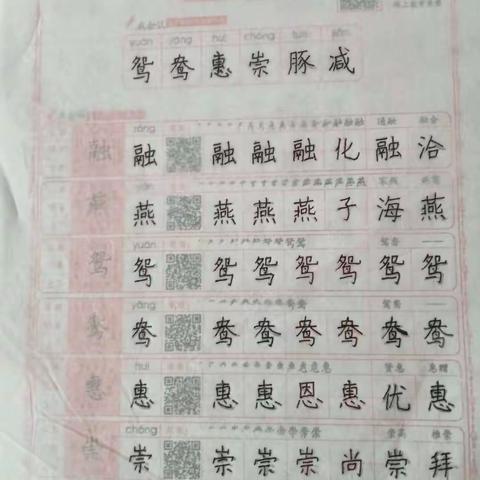 我会认
yuān yāng huì chóng tún jiǎn
鸳 鸯 惠 崇 豚 减
róng 通融 融合
融 融 融 融 融 化 融 洽
燕 燕 燕 燕 燕 子 海 燕
yuān 鸳鸯
鸳 鸳 鸳 鸳 鸳 鸳 鸳 鸳
yāng 鸳鸯
鸯 鸯 鸯 鸯 鸯 鸯 鸯 鸯
huì
惠 惠 惠 惠 恩 惠 优 惠
chóng 崇高 推崇
崇 崇 崇 崇 崇 尚 崇 拜